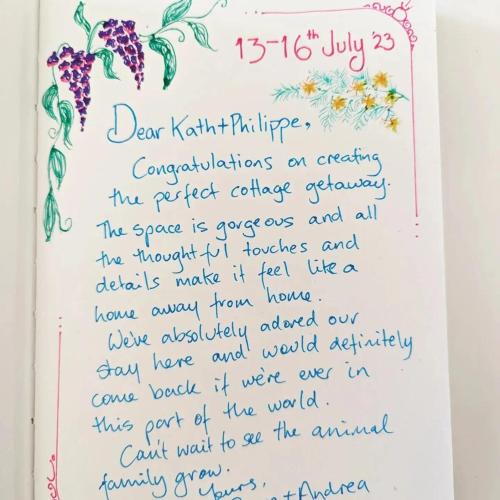 13-16th July '23
Dear Kath+Philippe,
Congratulations on creating
the perfect cottage getaway.
The space is gorgeous and all
the thoughtful touches and
details make it feel like a
home away from home.
We've absolutely adored our
stay here and would definitely
come back if we're ever in
this part of the world.
Can't wait to see the animal
family grow.
Yours,
+Andrea